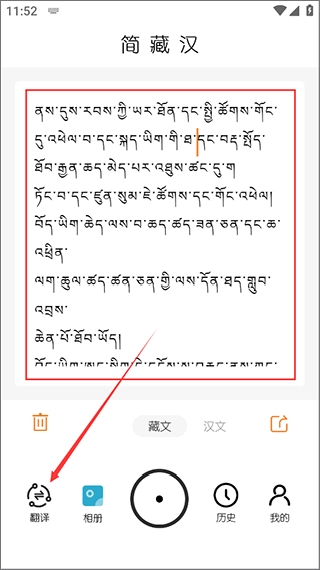 11:52
简藏汉
ནས་དུས་རབས་ཀྱི་ཡར་ཐོན་དང་སྤྱི་ཚོགས་གོང་
དུ་འཕེལ་བ་དང་སྐད་ཡིག་གི་ཐ་དང་བརྡ་སྤྲོད་
ཐོབ་རྒྱན་ཆད་མེད་པར་འཐུས་ཚང་དུ་ག
ཏོང་བ་དང་ཛུན་སུམ་ཇེ་ཚོགས་དང་གོང་འཕེལ།
བོད་ཡིག་ཆེད་ལས་བ་ཆད་ཚད་ཟན་ཅན་དང་ཆ་
འཕྲིན་
ལག་རྩལ་ཚད་ཚན་ཅན་གྱི་ལས་དོན་ཐད་གྲུབ་
འབྲས་
ཆེན་པོ་ཐོབ་ཡོད།
藏文
汉文
翻译
相册
历史
我的